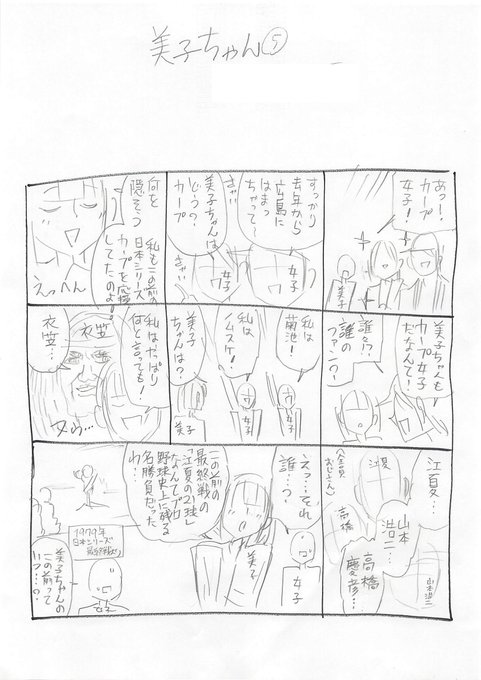 美子ちゃん⑤
あっ!
カープ
女子!
美子
すっかり
去年から
広島に
はまっ
ちゃって〜
美子ちゃんは
どう?
カープ
女子
女子
何を
隠そう
私もこの前の
日本シリーズ
カープを応援
してたのよ!
えっへん
美子ちゃんも
カープ女子
だなんて!
誰々!?
誰の
ファン?
私は
菊池!
私は
ノムスケ!
美子
ちゃんは?
女子
女子
美子
私はやっぱり
何と言っても!
衣笠
衣笠…
江夏…
山本
浩二…
高橋
慶彦…
江夏
山本浩二
高橋
(全員
おじさん)
えっ…それ
誰…?
女子
美子
この前の
最終戦の
「江夏の21球」
なんてプロ
野球史上に残る
名勝負だった
わ…
1979年
日本シリーズ
美子ちゃんの
この前って
いつ…?
女子